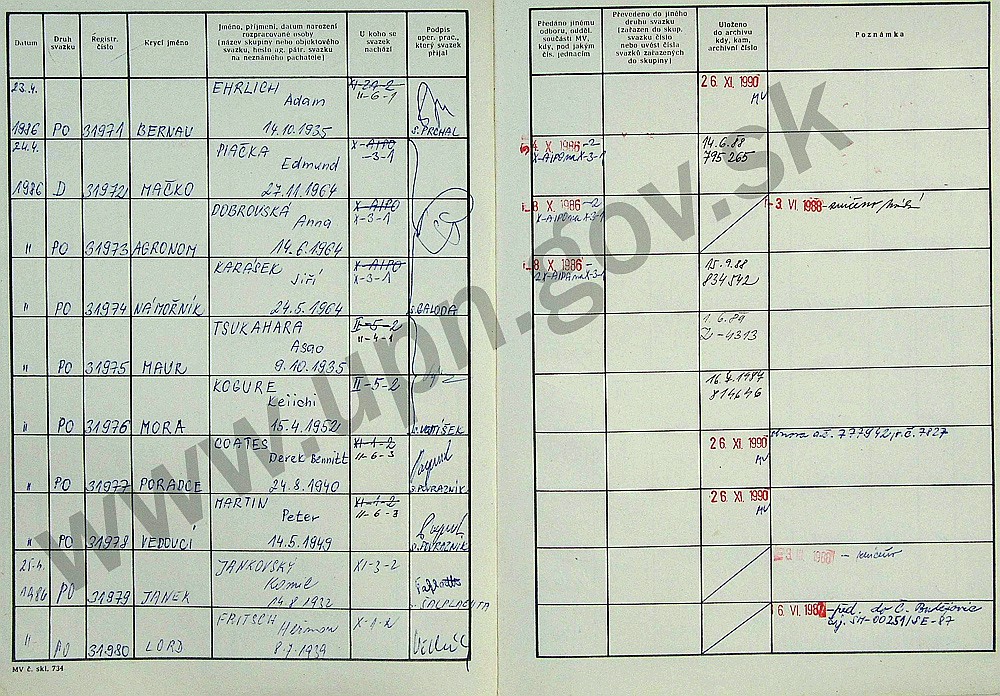 Datum
Druh
svazku
Registr.
číslo
Krycí jméno
Jméno, příjmení, datum narození
rozpracované osoby
(název skupiny nebo objektového
svazku, heslo ag. pátr. svazku
na neznámého pachatele)
U koho se
svazek
nachází
Podpis
oper. prac.,
který svazek
přijal
Předáno jinému
odboru, odděl.
součásti MV,
kdy, pod jakým
čís. jednacím
Převedeno do jiného
druhu svazku
(zařazen do skup.
svazku číslo
nebo uvést čísla
svazků zařazených
do skupiny)
Uloženo
do archivu
kdy, kam,
archivní číslo
Poznámka
23.4. EHRLICH XI-2A-2 26 XI. 1990
Adam II-6-1 MV
1986 PO 31971 BERNAU 14.10.1935 S. PRCHAL
24.4. PIAČKA X-AIPO 4. X. 1986 -2 14.6.88
Edmund -3-1 X-AIPO na X-3-1 795 265
1986 D 31972 MAČKO 27.11.1964
DOBROVSKÁ X-AIPO 8 X. 1986 -2 - 3. VI. 1988 - zničeno
Anna X-3-1 X-AIPO na X-3-1
" PO 31973 AGRONOM 14.6.1964
KARÁSEK X-AIPO 8. X. 1986 15.9.88
Jiří X-3-1 X-AIPA na X-3-1 834542
" PO 31974 NÁMOŘNÍK 24.5.1964
TSUKAHARA II-5-2 1.6.89
Asao II-4-1 Z-4313
" PO 31975 MAUR 9.10.1935
KOGURE II-5-2 1987
Keiichi 814646
" PO 31976 MORA 15.4.1952
COATES XI-1-2 26 XI. 1990 a.č. 777942, r.č. 7827
Derek Bennitt II-6-3 MV
" PO 31977 PORADCE 24.8.1940 S. POVRAZNÍK
MARTIN XI-1-2 26 XI. 1990
Peter II-6-3 MV
" PO 31978 VEDOUCÍ 14.5.1949 S. POVRAZNÍK
25.4. JANKOVSKÝ XI-3-2 - zničeno
Kamil
1986 PO 31979 JANEK 14.8.1932
FRITSCH X-1-2 6 VI. 198 - před. do Č. Budějovic
Herman čj. SM-00251/SE-87
" PO 31980 LORD 8.7.1939
MV č. skl. 734
www.upn.gov.sk